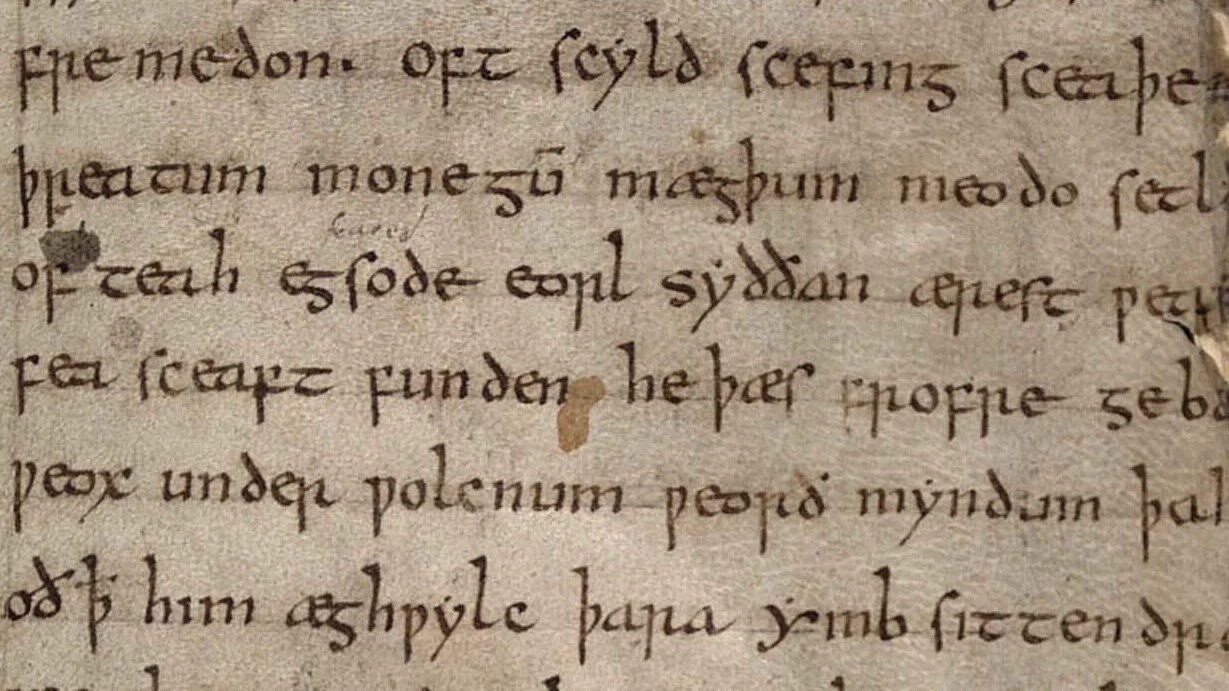 fremedon. Oft scẏld scefing sceaþe
þreatum monegū mægþum meodo setl
of teah egsode eorl sẏððan ærest ƿear
fea sceaft funden he þæs frofre geba
ƿeox under ƿolcnum ƿeorð mẏndum þah
oð ꝥ him æghƿẏlc þara ẏmb sittendra